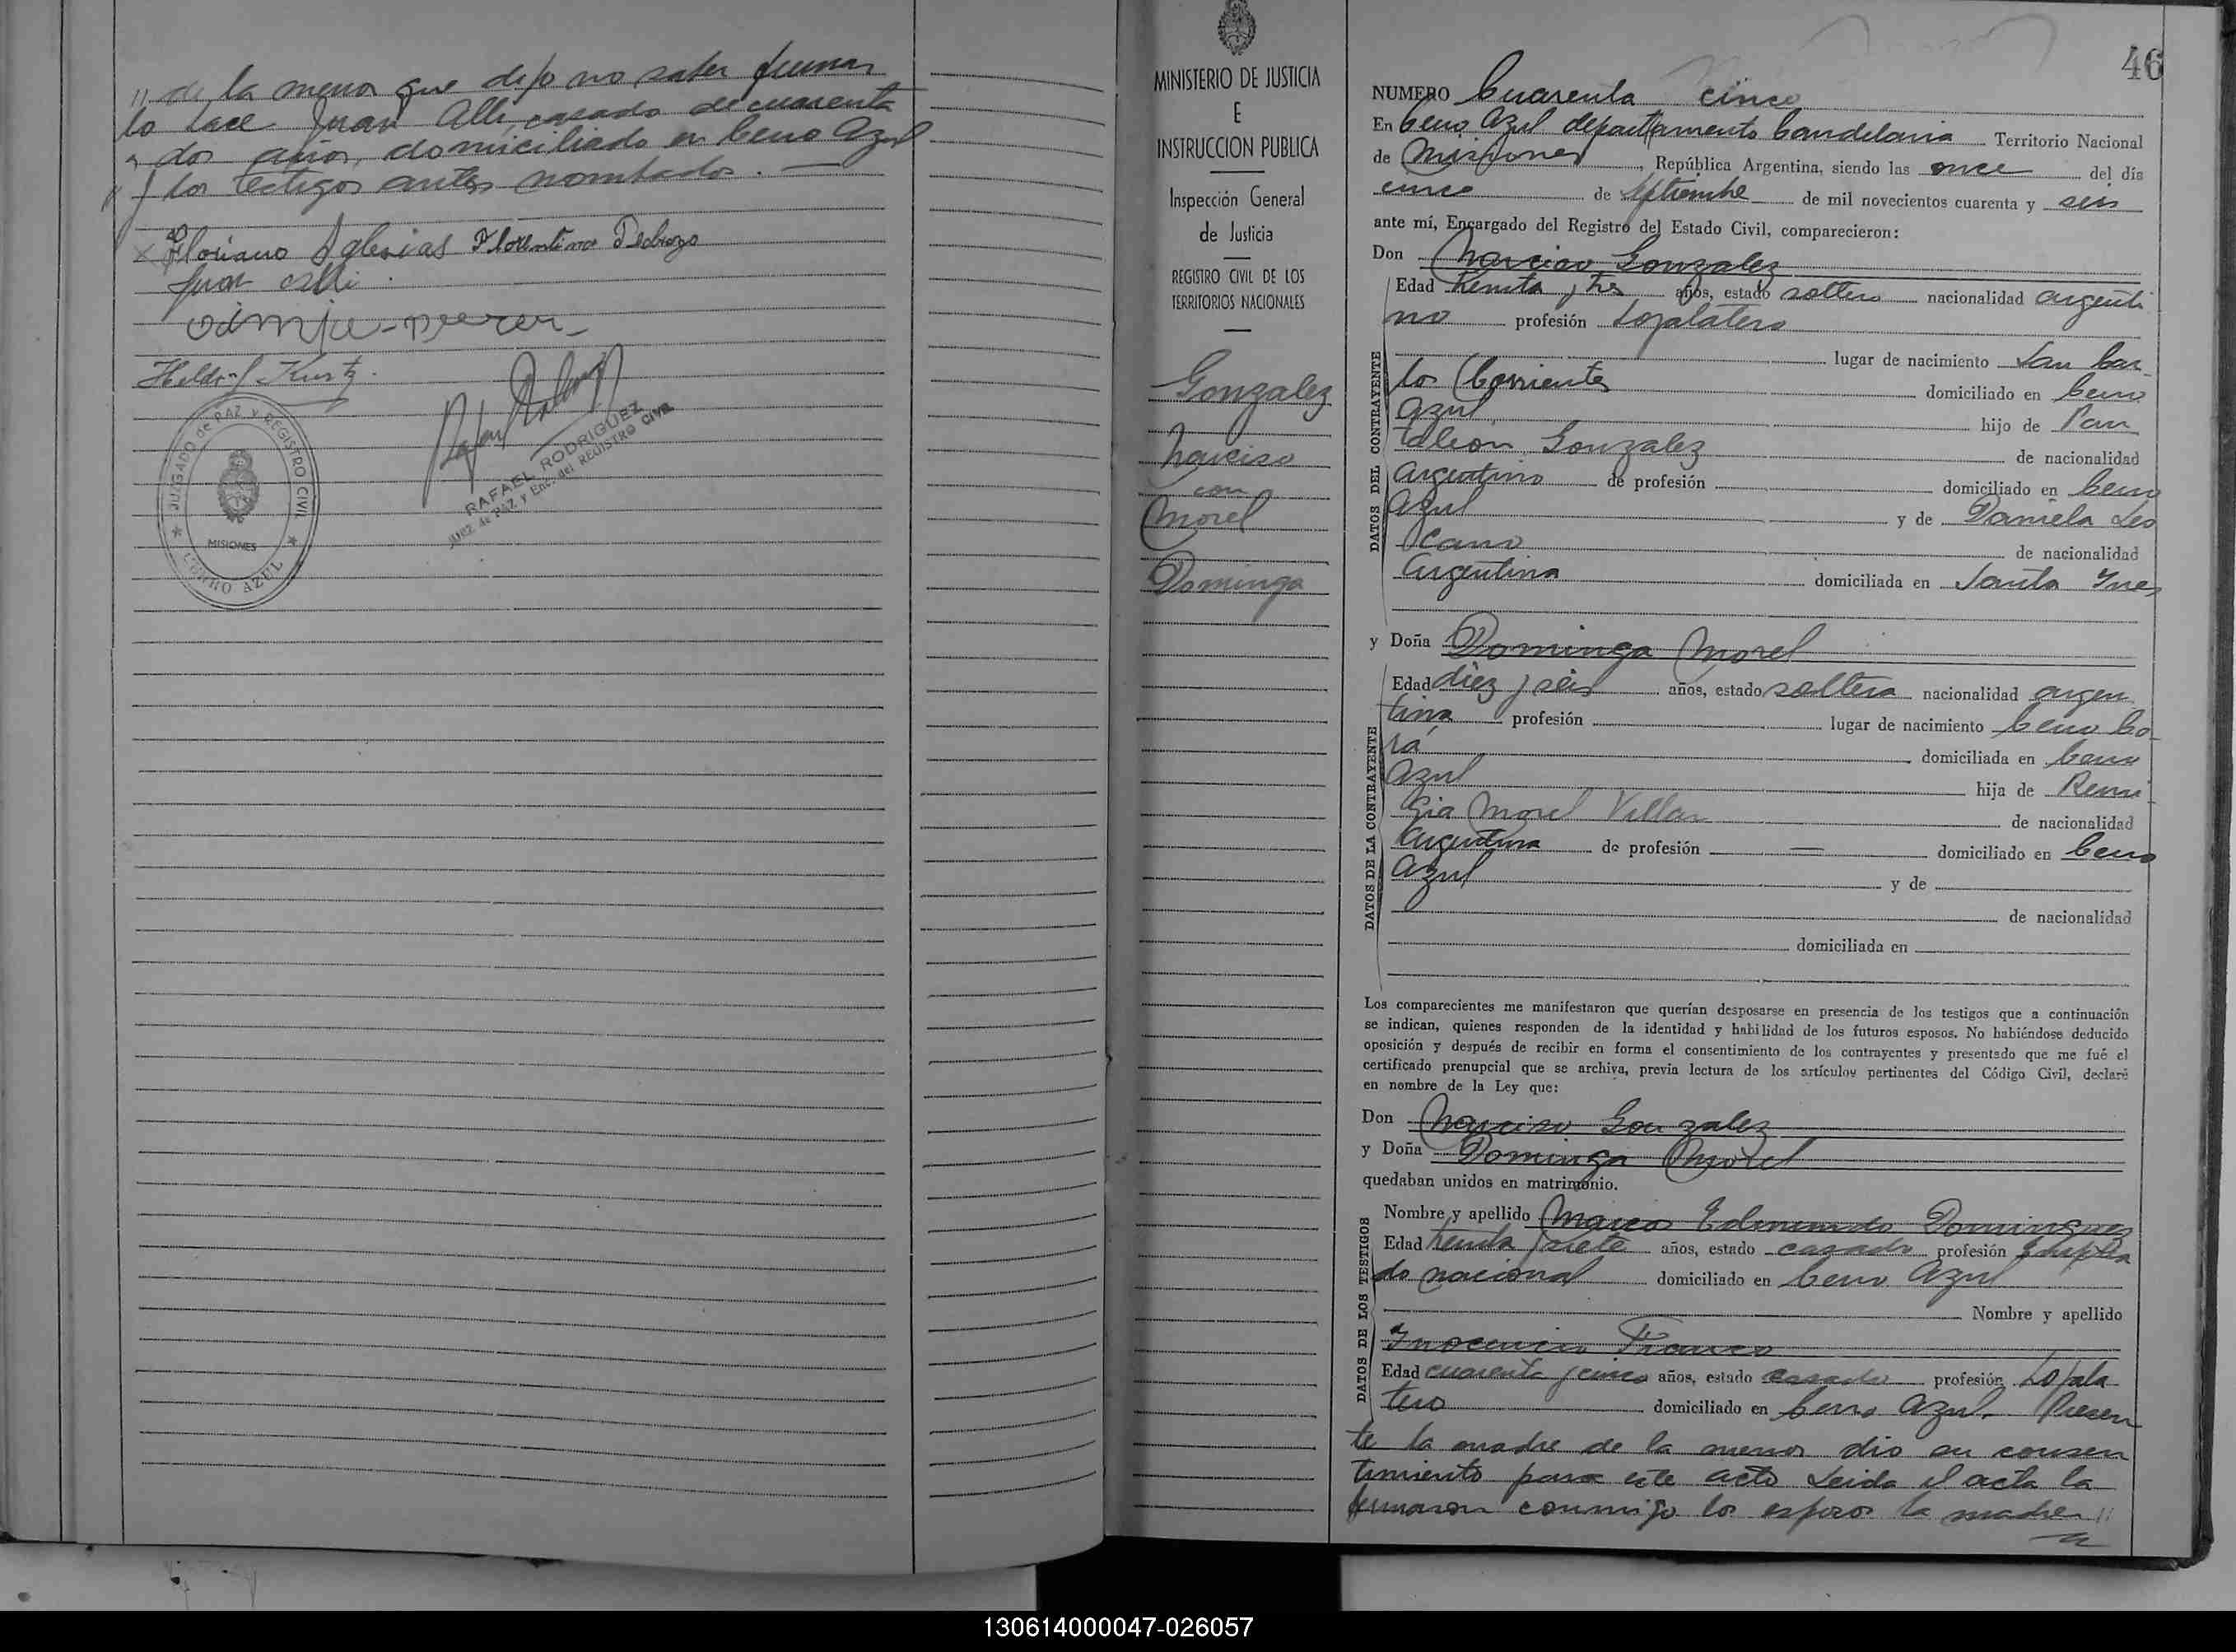 " de la menor que dijo no saber firmar
lo hace Juan Alli, casado de cuarenta
y dos años, domiciliado en Cerro Azul
" y los testigos antes nombrados. —
Floriano Iglesias Florentino Pedrozo
Juan Alli
Kurtz
JUZGADO de PAZ y REGISTRO CIVIL
MISIONES
★ CERRO AZUL ★
RAFAEL RODRIGUEZ
JUEZ de PAZ y Enc. del REGISTRO CIVIL
MINISTERIO DE JUSTICIA
E
INSTRUCCION PUBLICA
Inspección General
de Justicia
REGISTRO CIVIL DE LOS
TERRITORIOS NACIONALES
Gonzalez
Narciso
con
Morel
Dominga
46
NUMERO Cuarenta cinco
En Cerro Azul departamento Candelaria Territorio Nacional
de Misiones, República Argentina, siendo las once del día
cinco de Septiembre de mil novecientos cuarenta y seis
ante mí, Encargado del Registro del Estado Civil, comparecieron:
Don Narciso Gonzalez
DATOS DEL CONTRAYENTE
Edad treinta y tres años, estado soltero nacionalidad argenti
no profesión Zopalatero
lugar de nacimiento San Car
los Corrientes domiciliado en Cerro
Azul hijo de Pan
taleon Gonzalez de nacionalidad
argentino de profesión domiciliado en Cerro
Azul y de Daniela Les
cano de nacionalidad
argentina domiciliada en Santa Ines
y Doña Dominga Morel
DATOS DE LA CONTRAYENTE
Edad diez y seis años, estado soltera nacionalidad argen
tina profesión lugar de nacimiento Cerro Co
rá domiciliada en Cerro
Azul hija de Remi
gia Morel Villar de nacionalidad
argentina de profesión — domiciliado en Cerro
Azul y de
de nacionalidad
domiciliada en
Los comparecientes me manifestaron que querían desposarse en presencia de los testigos que a continuación
se indican, quienes responden de la identidad y habilidad de los futuros esposos. No habiéndose deducido
oposición y después de recibir en forma el consentimiento de los contrayentes y presentado que me fué el
certificado prenupcial que se archiva, previa lectura de los artículos pertinentes del Código Civil, declaré
en nombre de la Ley que:
Don Narciso Gonzalez
y Doña Dominga Morel
quedaban unidos en matrimonio.
DATOS DE LOS TESTIGOS
Nombre y apellido Marcos Edmundo Dominguez
Edad treinta y siete años, estado casado profesión Emplea
do nacional domiciliado en Cerro Azul
Nombre y apellido
Inocencio Franco
Edad cuarenta y cinco años, estado casado profesión Zopala
tero domiciliado en Cerro Azul. Presen
te la madre de la menor dio su consen
timiento para este acto Leida el acta la
firmaron conmigo los esposos la madre "
130614000047-026057